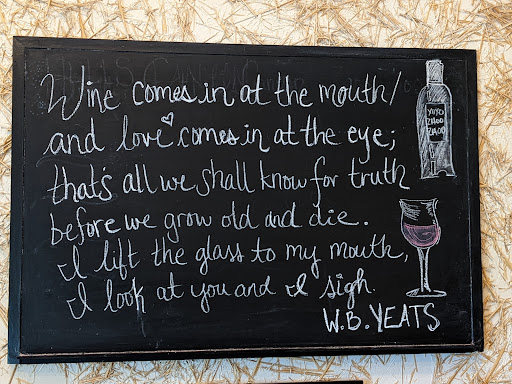 Wine comes in at the mouth/
and love comes in at the eye;
that's all we shall know for truth
before we grow old and die.
I lift the glass to my mouth,
I look at you and I sigh.
W.B. YEATS